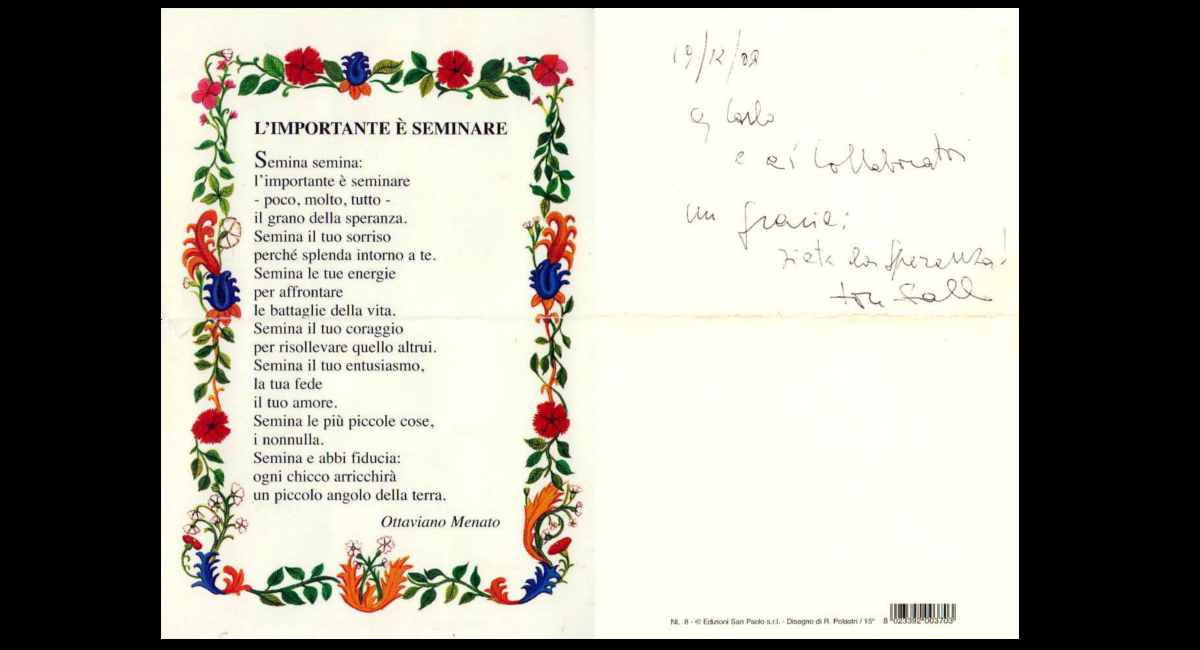 L'IMPORTANTE È SEMINARE
Semina semina:
l'importante è seminare
- poco, molto, tutto -
il grano della speranza.
Semina il tuo sorriso
perché splenda intorno a te.
Semina le tue energie
per affrontare
le battaglie della vita.
Semina il tuo coraggio
per risollevare quello altrui.
Semina il tuo entusiasmo,
la tua fede
il tuo amore.
Semina le più piccole cose,
i nonnulla.
Semina e abbi fiducia:
ogni chicco arricchirà
un piccolo angolo della terra.
Ottaviano Menato
19/12/08
Carlo
e ai Collaboratori
un grazie:
siete la speranza!
NL 8 - © Edizioni San Paolo s.r.l. - Disegno di R. Polastri / 15°
8 023392 003703